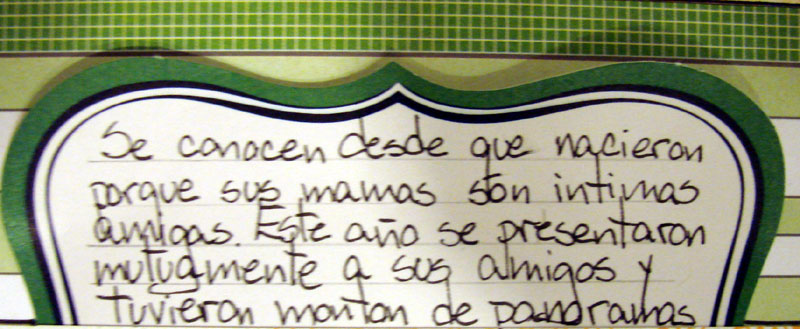 Se conocen desde que nacieron
porque sus mamas son intimas
amigas. Este año se presentaron
mutuamente a sus amigos y
tuvieron monton de panoramas